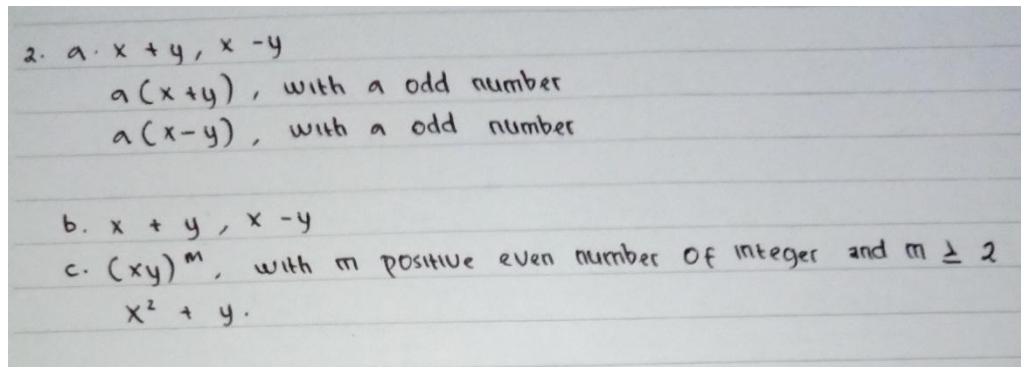 2. a. x + y, x - y
a(x+y), with a odd number
a(x-y), with a odd number
b. x + y, x - y
c. (xy)^m, with m positive even number of integer and m ≥ 2
x² + y.